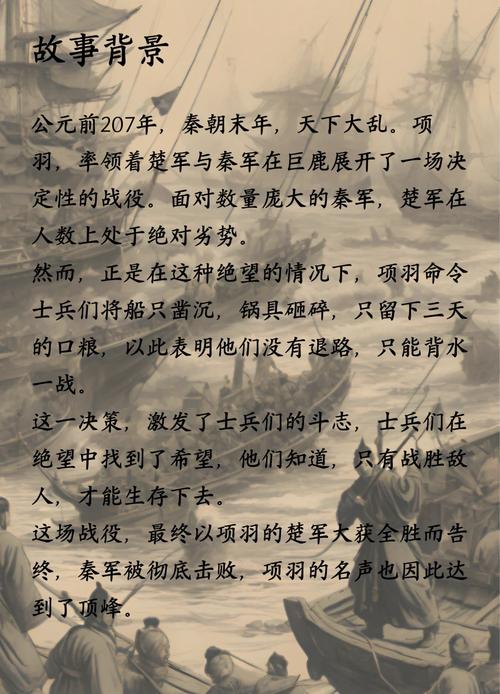 故事背景
公元前207年，秦朝末年，天下大乱。项
羽，率领着楚军与秦军在巨鹿展开了一场决
定性的战役。面对数量庞大的秦军，楚军在
人数上处于绝对劣势。
然而，正是在这种绝望的情况下，项羽命令
士兵们将船只凿沉，锅具砸碎，只留下三天
的口粮，以此表明他们没有退路，只能背水
一战。
这一决策，激发了士兵们的斗志，士兵们在
绝望中找到了希望，他们知道，只有战胜敌
人，才能生存下去。
这场战役，最终以项羽的楚军大获全胜而告
终，秦军被彻底击败，项羽的名声也因此达
到了顶峰。